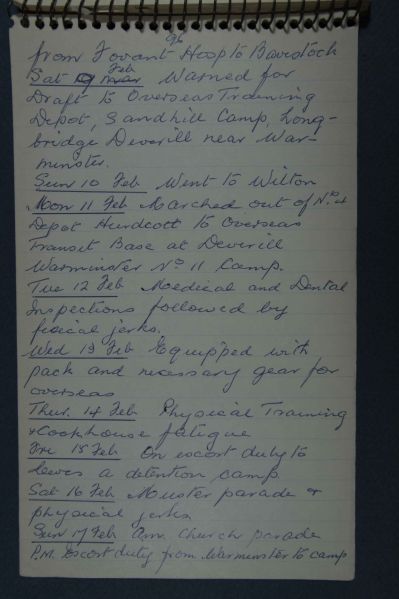 96
from Fovant Hosp to Baverstock
Sat 9 Feb Warned for
Draft to Overseas Training
Depot, Sandhill Camp, Long-
bridge Deverill near War-
minster.
Sun 10 Feb Went to Wilton
Mon 11 Feb Marched out of No. 4
Depot Hurdcott to Overseas
Transit Base at Deverill
Warminster No 11 Camp.
Tue 12 Feb Medical and Dental
Inspections followed by
fisical jerks.
Wed 13 Feb Equipped with
pack and necessary gear for
overseas
Thur. 14 Feb Physical Training
& Cookhouse fatigue
Fri 15 Feb On escort duty to
Lewes a detention camp.
Sat 16 Feb Muster parade &
physical jerks
Sun 17 Feb Am. Church parade
P.M. Escort duty from Warminster to camp